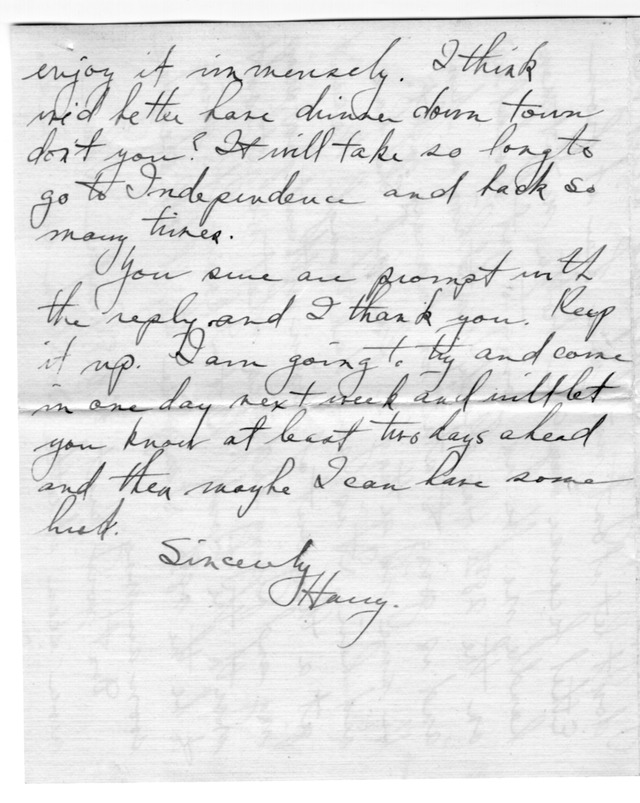 enjoy it immensely. I think
we'd better have dinner down town
don't you? It will take so long to
go to Independence and back so
many times.
You sure are prompt with
the reply and I thank you. Keep
it up. I am going to try and come
in one day next week and will let
you know at least two days ahead
and then maybe I can have some
luck.
Sincerely
Harry.